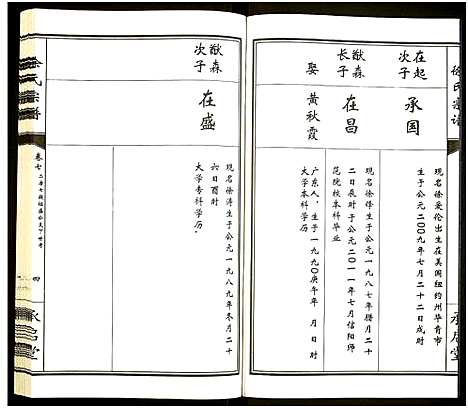 徐氏宗谱
承启堂
在起次子
承国
现名徐爱伦出生在美国纽约州华肯市
生于公元二00九年七月二十二日戌时
猷森长子
在昌
现名徐锋生于公元一九八七年腊月二十
二日辰时于公元二0一一年七月信阳师
范院校本科毕业
娶
黄秋霞
广东人，生于一九九0庚午年 月 日时
大学本科学历
猷森次子
在盛
现名徐涛生于公元一九八九年冬月二十
六日酉时
大学专科学历
徐氏宗谱
卷七
四
承启堂